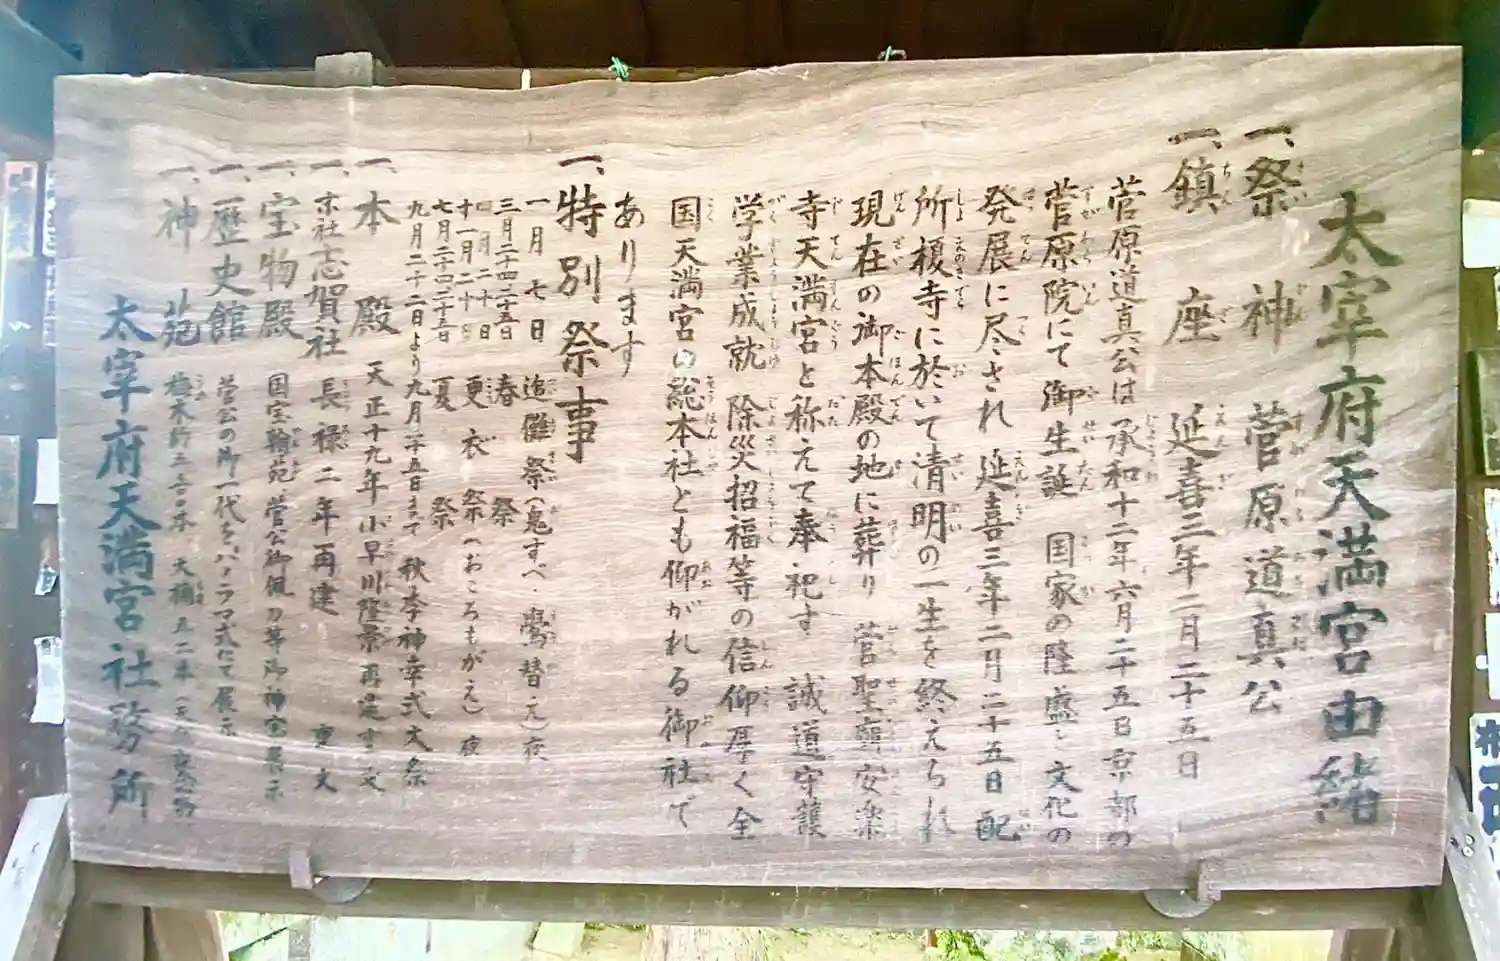 太宰府天満宮由緒
一、祭神 菅原道真公
一、鎮座 延喜三年二月二十五日
菅原道真公は承和十二年六月二十五日京都の
菅原院にて御生誕 国家の隆盛と文化の
発展に尽され 延喜三年二月二十五日 配
所榎寺に於いて清明の一生を終えられ
現在の御本殿の地に葬り 菅聖廟安楽
寺天満宮と称えて奉祀す 誠道守護
学業成就 除災招福等の信仰厚く全
国天満宮の総本社とも仰がれる御社で
あります
一、特別祭事
一月七日 追儺祭(鬼すべ・鷽替え)夜
三月二十四二十五日 春祭
四月二十日
十一月二十日 更衣祭(おころもがえ)夜
七月二十四二十五日 夏祭
九月二十二日より九月二十五日まで 秋季神幸式大祭
一、本殿 天正十九年小早川隆景再建 重文
一、末社志賀社 長禄二年再建 重文
一、宝物殿 国宝翰苑 菅公御佩刀等御神宝展示
一、歴史館 菅公の御一代をパノラマ式にて展示
一、神苑 梅木約三千本 大樟五二本
太宰府天満宮社務所